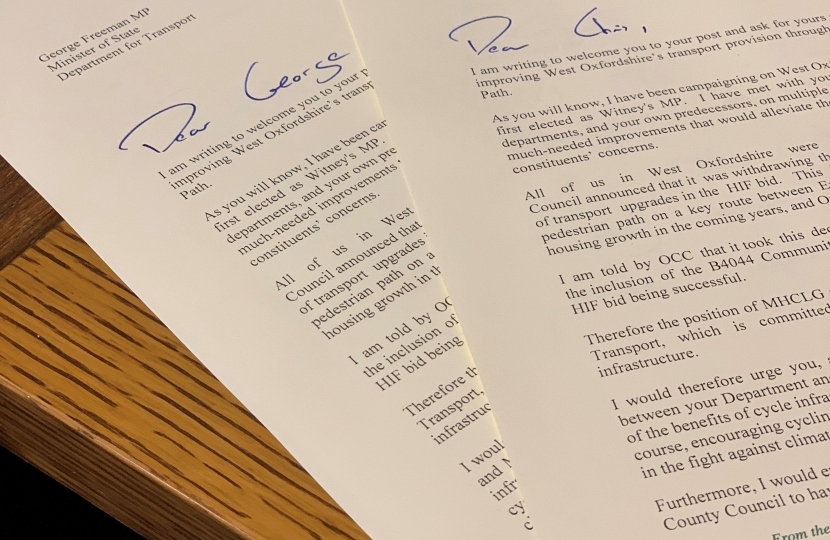 George Freeman MP
Minister of State
Department for Transport
Dear George
I am writing to welcome you to your
improving West Oxfordshire's transp
Path.
As you will know, I have been car
first elected as Witney's MP.
departments, and your own pre
much-needed improvements
constituents' concerns.
All of us in West
Council announced that
of transport upgrades
pedestrian path on a
housing growth in th
I am told by OC
the inclusion of
HIF bid being
Therefore th
Transport,
infrastruc
I woul
and
infr
cy
Dear Chris,
I am writing to welcome you to your post and ask for yours
improving West Oxfordshire's transport provision through
Path.
As you will know, I have been campaigning on West Ox
first elected as Witney's MP. I have met with you
departments, and your own predecessors, on multiple
much-needed improvements that would alleviate th
constituents' concerns.
All of us in West Oxfordshire were
Council announced that it was withdrawing th
of transport upgrades in the HIF bid. This
pedestrian path on a key route between E
housing growth in the coming years, and O
I am told by OCC that it took this dec
the inclusion of the B4044 Communi
HIF bid being successful.
Therefore the position of MHCLG
Transport, which is committed
infrastructure.
I would therefore urge you,
between your Department an
of the benefits of cycle infra
course, encouraging cyclin
in the fight against climat
Furthermore, I would e
County Council to ha
From the